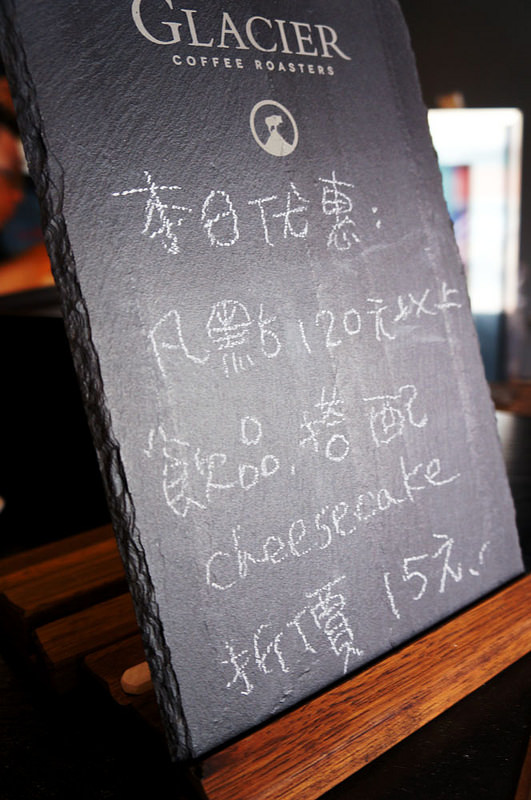 GLACIER
COFFEE ROASTERS
本日优惠:
凡點120元以上
飲品,搭配
cheesecake
折價15元.